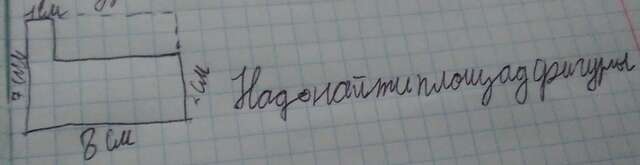 1см
7 см
8 см
Надо найти площад фигуры